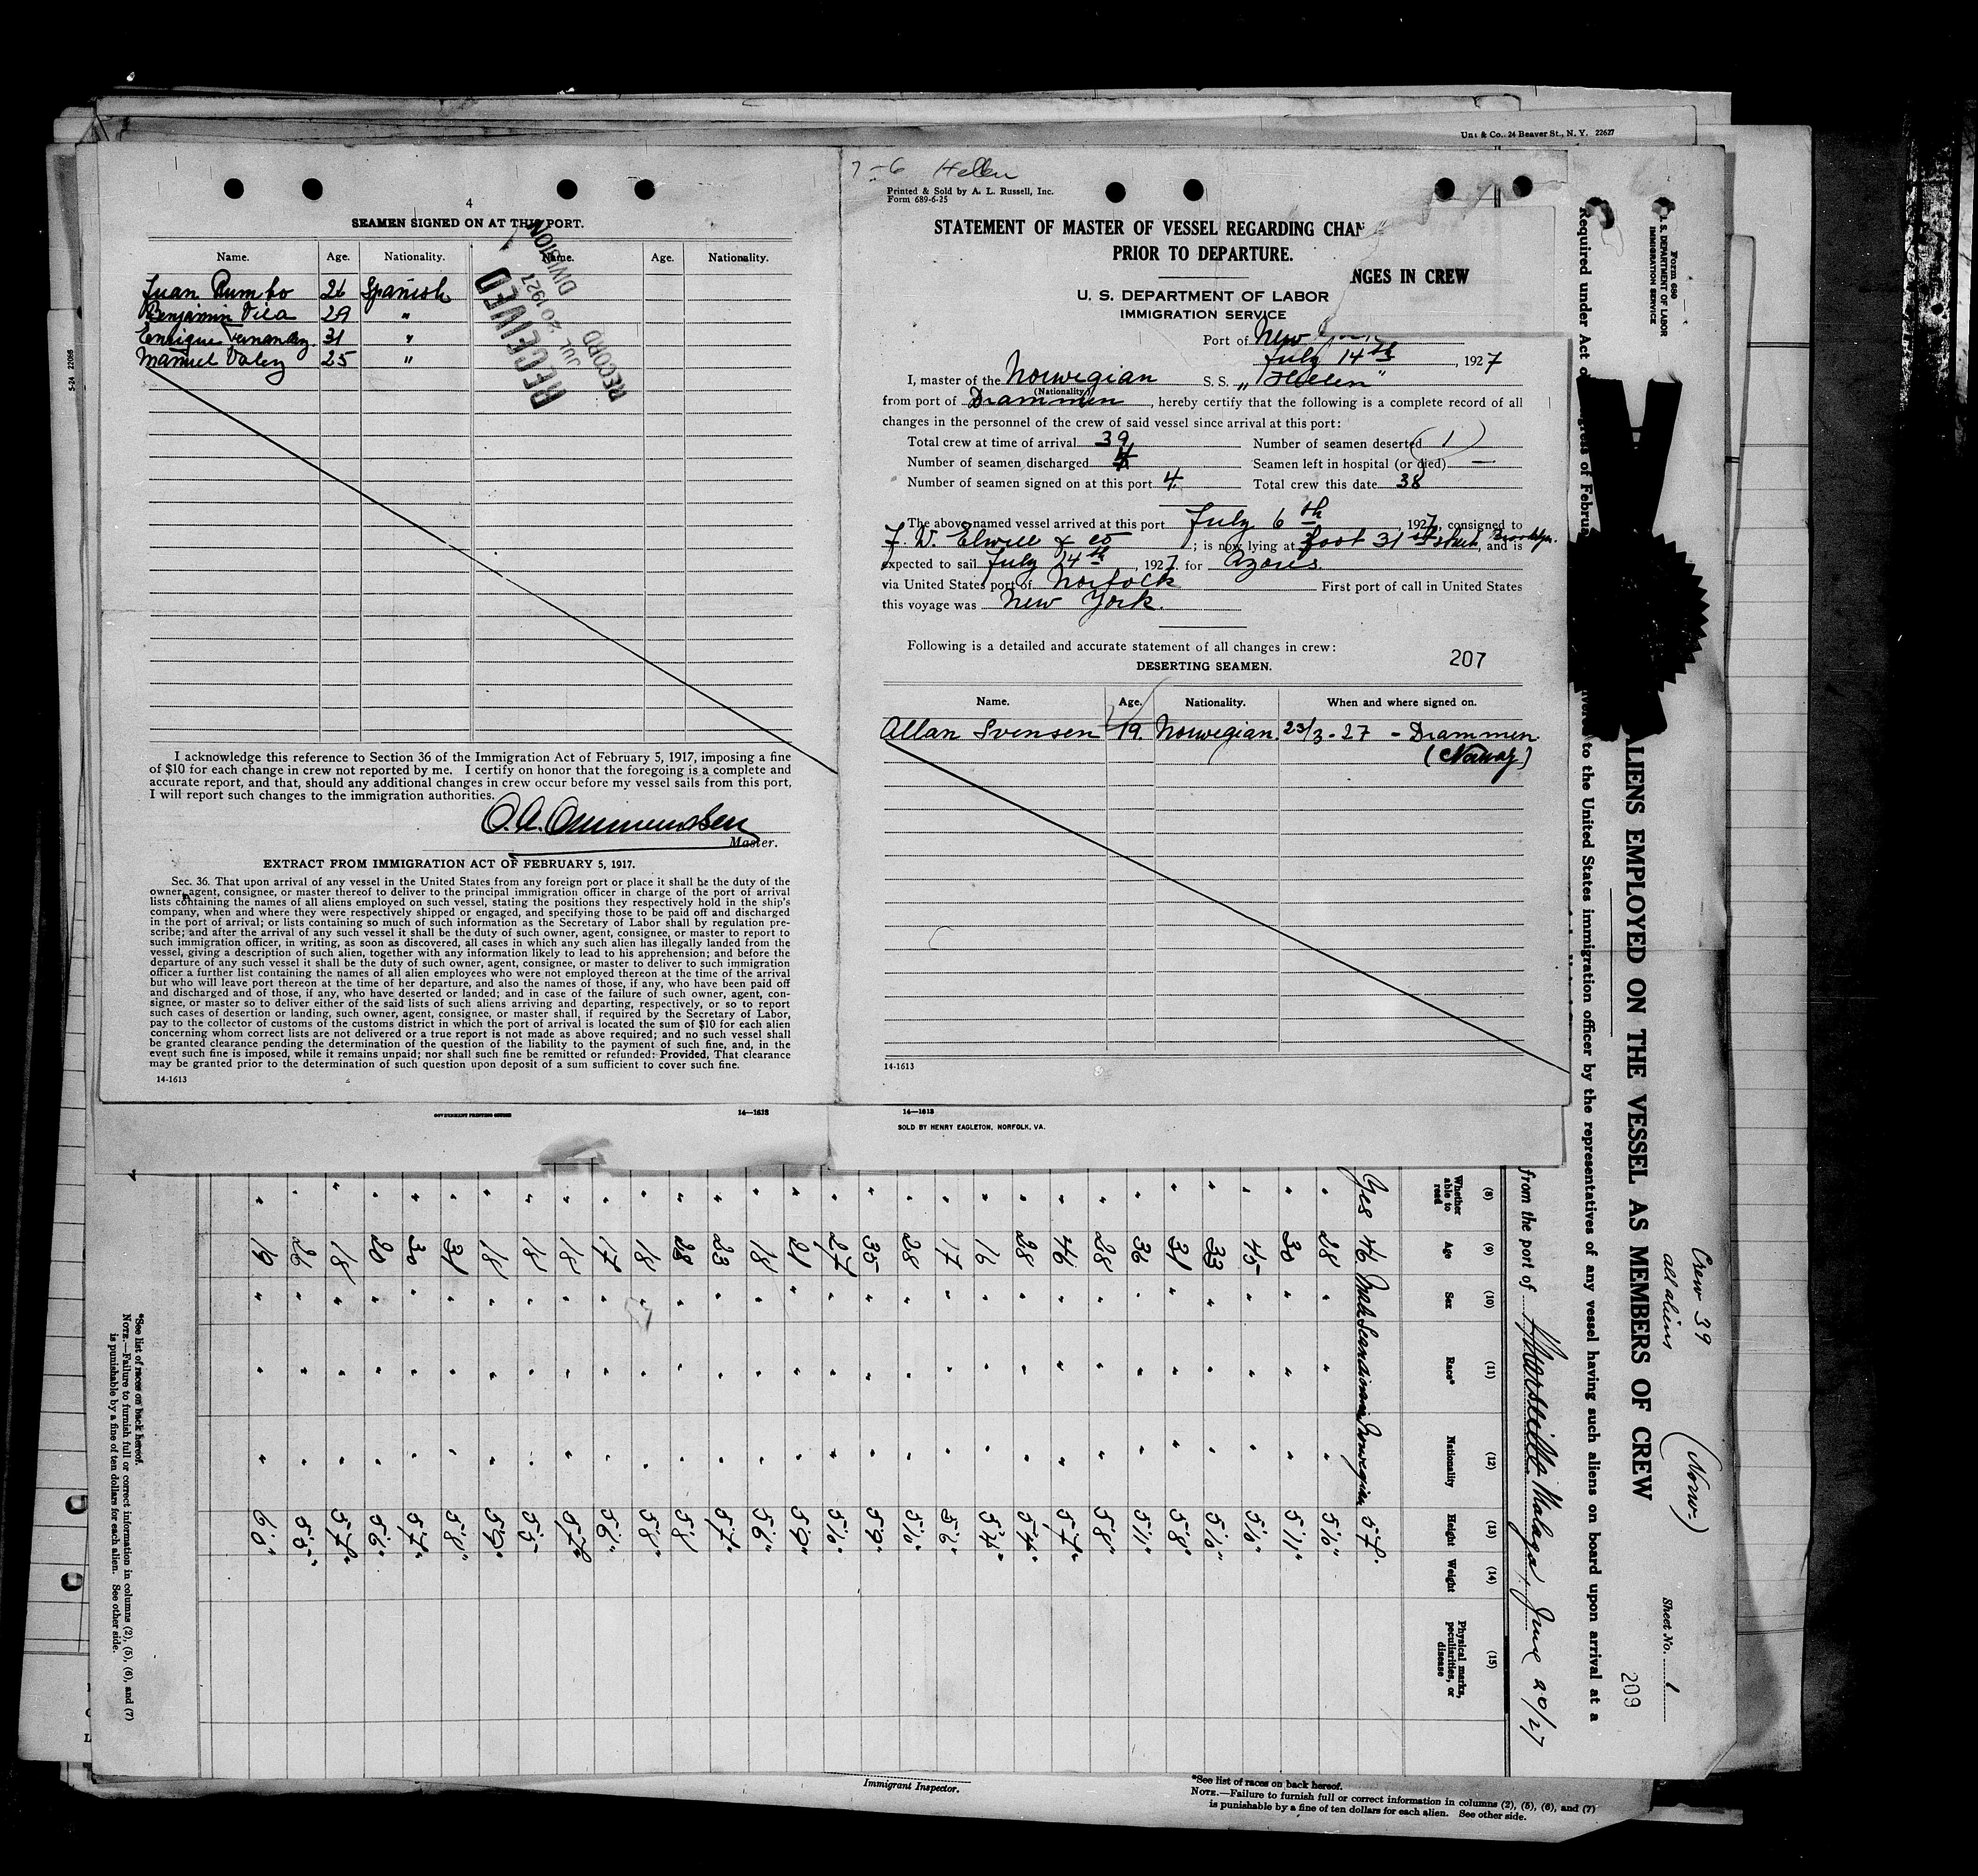 Uni & Co., 24 Beaver St., N. Y. 22627
4
SEAMEN SIGNED ON AT THIS PORT.
Name. Age. Nationality. Name. Age. Nationality.
Juan Rumbo 26 Spanish
Benjamin Vila 29 "
Enrique Fernandez 31 "
Manuel 25 "
RECEIVED
JUL 20 1927
RECORD DIVISION
I acknowledge this reference to Section 36 of the Immigration Act of February 5, 1917, imposing a fine
of $10 for each change in crew not reported by me. I certify on honor that the foregoing is a complete and
accurate report, and that, should any additional changes in crew occur before my vessel sails from this port,
I will report such changes to the immigration authorities.
Master.
EXTRACT FROM IMMIGRATION ACT OF FEBRUARY 5, 1917.
Sec. 36. That upon arrival of any vessel in the United States from any foreign port or place it shall be the duty of the
owner, agent, consignee, or master thereof to deliver to the principal immigration officer in charge of the port of arrival
lists containing the names of all aliens employed on such vessel, stating the positions they respectively hold in the ship's
company, when and where they were respectively shipped or engaged, and specifying those to be paid off and discharged
in the port of arrival; or lists containing so much of such information as the Secretary of Labor shall by regulation pre-
scribe; and after the arrival of any such vessel it shall be the duty of such owner, agent, consignee, or master to report to
such immigration officer, in writing, as soon as discovered, all cases in which any such alien has illegally landed from the
vessel, giving a description of such alien, together with any information likely to lead to his apprehension; and before the
departure of any such vessel it shall be the duty of such owner, agent, consignee, or master to deliver to such immigration
officer a further list containing the names of all alien employees who were not employed thereon at the time of the arrival
but who will leave port thereon at the time of her departure, and also the names of those, if any, who have been paid off
and discharged and of those, if any, who have deserted or landed; and in case of the failure of such owner, agent, con-
signee, or master so to deliver either of the said lists of such aliens arriving and departing, respectively, or so to report
such cases of desertion or landing, such owner, agent, consignee, or master shall, if required by the Secretary of Labor,
pay to the collector of customs of the customs district in which the port of arrival is located the sum of $10 for each alien
concerning whom correct lists are not delivered or a true report is not made as above required; and no such vessel shall
be granted clearance pending the determination of the question of the liability to the payment of such fine, and, in the
event such fine is imposed, while it remains unpaid; nor shall such fine be remitted or refunded: Provided, That clearance
may be granted prior to the determination of such question upon deposit of a sum sufficient to cover such fine.
14-1613
GOVERNMENT PRINTING OFFICE
14—1613
7-6 Helen
Printed & Sold by A. L. Russell, Inc.
Form 689-6-25
STATEMENT OF MASTER OF VESSEL REGARDING CHAN
PRIOR TO DEPARTURE.
NGES IN CREW
U. S. DEPARTMENT OF LABOR
IMMIGRATION SERVICE
Port of New
July 14th, 1927
I, master of the Norwegian S. S. "Helen"
(Nationality)
from port of Drammen, hereby certify that the following is a complete record of all
changes in the personnel of the crew of said vessel since arrival at this port:
Total crew at time of arrival 39 Number of seamen deserted 1
Number of seamen discharged Seamen left in hospital (or died) —
Number of seamen signed on at this port 4. Total crew this date 38
The above-named vessel arrived at this port July 6th, 1927, consigned to
F. W. Elwell & co; is now lying at foot 31st street, Brooklyn. and is
expected to sail July 24th, 1927. for Azores.
via United States port of Norfolk First port of call in United States
this voyage was New York.
Following is a detailed and accurate statement of all changes in crew:
DESERTING SEAMEN.
207
Name. Age. Nationality. When and where signed on.
Allan Svensen 19. Norwegian. 23/3-27 - Drammen
(Norway)
14-1613
14—1613
SOLD BY HENRY EAGLETON, NORFOLK, VA.
Form 680
U. S. DEPARTMENT OF LABOR
IMMIGRATION SERVICE
Crew 39
all aliens
(Norw.)
Sheet No. 1
209
ALIENS EMPLOYED ON THE VESSEL AS MEMBERS OF CREW
Required under Act of Congress of Februa
to the United States immigration officer by the representatives of any vessel having such aliens on board upon arrival at a
from the port of Marseille Malaga, June 20/27
(8) (9) (10) (11) (12) (13) (14) (15)
Whether able to read Age Sex Race* Nationality Height Weight Physical marks, peculiarities, or disease
Yes 46 Male Scandinavian Norwegian 5'7"
" 28 " " " 5'6"
" 30 " " " 5'11"
" 45 " " " 5'6"
" 33 " " " 5'6"
" 31 " " " 5'8"
" 36 " " " 5'11"
" 28 " " " 5'8"
" 46 " " " 5'7"
" 28 " " " 5'4"
" 16 " " " 5'4"
" 17 " " " 5'6"
" 28 " " " 5'10"
" 35 " " " 5'9"
" 27 " " " 5'10"
" 21 " " " 5'9"
" 18 " " " 5'6"
" 23 " " " 5'7"
" 28 " " " 5'8"
" 18 " " " 5'8"
" 17 " " " 5'6"
" 18 " " " 5'7"
" 18 " " " 5'5"
" 18 " " " 5'9"
" 31 " " " 5'8"
" 30 " " " 5'7"
" 20 " " " 5'6"
" 18 " " " 5'7"
" 26 " " " 5'5"
" 19 " " " 6'0"
*See list of races on back hereof.
NOTE.—Failure to furnish full or correct information in columns (2), (5), (6), and (7)
is punishable by a fine of ten dollars for each alien. See other side.
Immigrant Inspector.
*See list of races on back hereof.
NOTE.—Failure to furnish full or correct information in columns (2), (5), (6), and (7)
is punishable by a fine of ten dollars for each alien. See other side.